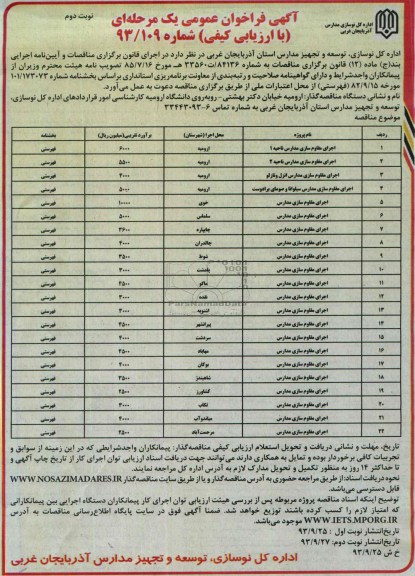 نوبت دوم
آگهی فراخوان عمومی یک مرحله‌ای
(با ارزیابی کیفی) شماره ۹۳/۱۰۹
اداره کل نوسازی مدارس
آذربایجان غربی
اداره کل نوسازی، توسعه و تجهیز مدارس استان آذربایجان غربی در نظر دارد در اجرای قانون برگزاری مناقصات و آیین‌نامه اجرایی
بند(ج) ماده (۱۲) قانون برگزاری مناقصات به شماره ۸۴۱۳۶/ت۳۳۵۶۰هـ مورخ ۸۵/۷/۱۶ تصویب نامه هیئت محترم وزیران از
پیمانکاران واجدشرایط و دارای گواهینامه صلاحیت و رتبه‌بندی از معاونت برنامه‌ریزی استانداری براساس بخشنامه شماره ۱۰۱/۱۷۳۰۷۳
مورخه ۸۲/۹/۱۵ (فهرستی) از محل اعتبارات ملی از طریق برگزاری مناقصه دعوت به عمل می‌آورد.
نام و نشانی دستگاه مناقصه‌گذار: ارومیه خیابان دکتر بهشتی- روبه‌روی دانشگاه ارومیه کارشناسی امور قراردادهای اداره کل نوسازی،
توسعه و تجهیز مدارس استان آذربایجان غربی به شماره تماس ۶-۳۳۴۴۳۰۹۳
موضوع مناقصه
ردیف نام پروژه محل اجرا (شهرستان) برآورد تقریبی(میلیون ریال) بخشنامه
۱ اجرای مقاوم سازی مدارس ناحیه ۱ ارومیه ۶۰۰۰ فهرستی
۲ اجرای مقاوم سازی مدارس ناحیه ۲ ارومیه ۵۵۰۰ فهرستی
۳ اجرای مقاوم سازی مدارس انزل و نازلو ارومیه ۴۰۰۰ فهرستی
۴ اجرای مقاوم سازی مدارس سیلوانا و صومای برادوست ارومیه ۵۰۰۰ فهرستی
۵ اجرای مقاوم سازی مدارس خوی ۱۰۰۰۰ فهرستی
۶ اجرای مقاوم سازی مدارس سلماس ۵۰۰۰ فهرستی
۷ اجرای مقاوم سازی مدارس چایپاره ۳۶۰۰ فهرستی
۸ اجرای مقاوم سازی مدارس چالدران ۴۰۰۰ فهرستی
۹ اجرای مقاوم سازی مدارس شوط ۳۵۰۰ فهرستی
۱۰ اجرای مقاوم سازی مدارس پلدشت ۳۰۰۰ فهرستی
۱۱ اجرای مقاوم سازی مدارس ماکو ۳۵۰۰ فهرستی
۱۲ اجرای مقاوم سازی مدارس نقده ۳۰۰۰ فهرستی
۱۳ اجرای مقاوم سازی مدارس اشنویه ۳۰۰۰ فهرستی
۱۴ اجرای مقاوم سازی مدارس پیرانشهر فهرستی
۱۵ اجرای مقاوم سازی مدارس سردشت ۴۰۰۰ فهرستی
۱۶ اجرای مقاوم سازی مدارس مهاباد فهرستی
۱۷ اجرای مقاوم سازی مدارس بوکان ۴۰۰۰ فهرستی
۱۸ اجرای مقاوم سازی مدارس شاهیندژ ۳۵۰۰ فهرستی
۱۹ اجرای مقاوم سازی مدارس کشاورز ۲۵۰۰ فهرستی
۲۰ اجرای مقاوم سازی مدارس تکاب ۳۰۰۰ فهرستی
۲۱ اجرای مقاوم سازی مدارس میاندوآب ۴۰۰۰ فهرستی
۲۲ اجرای مقاوم سازی مدارس مرحمت‌آباد ۲۵۰۰ فهرستی
تاریخ، مهلت و نشانی دریافت و تحویل استعلام ارزیابی کیفی مناقصه‌گذار: پیمانکاران واجدشرایطی که در این زمینه از سوابق و
تجربیات کافی برخوردار بوده و تمایل به همکاری دارند می‌توانند جهت دریافت اسناد ارزیابی توان اجرای کار از تاریخ چاپ آگهی و
تا حداکثر ۱۴ روز به منظور تکمیل و تحویل مدارک لازم به آدرس اداره کل مراجعه نمایند.
نحوه دریافت اسناد: از طریق مراجعه حضوری به آدرس مناقصه‌گذار و یا از طریق سایت مناقصه‌گذار WWW.NOSAZIMADARES.IR
قابل دسترسی می‌باشد.
توضیح اینکه اسناد مناقصه پروژه مربوطه پس از بررسی هیئت ارزیابی توان اجرای کار پیمانکاران دستگاه اجرایی بین پیمانکارانی
که امتیاز لازم را کسب کرده باشند توزیع خواهد شد. ضمنا آگهی فوق در سایت پایگاه اطلاع‌رسانی مناقصات به آدرس
WWW.IETS.MPORG.IR موجود می‌باشد.
تاریخ انتشار نوبت اول: ۹۳/۹/۲۵
تاریخ انتشار نوبت دوم: ۹۳/۹/۲۷
خ ش ۹۳/۹/۲۵
اداره کل نوسازی، توسعه و تجهیز مدارس آذربایجان غربی